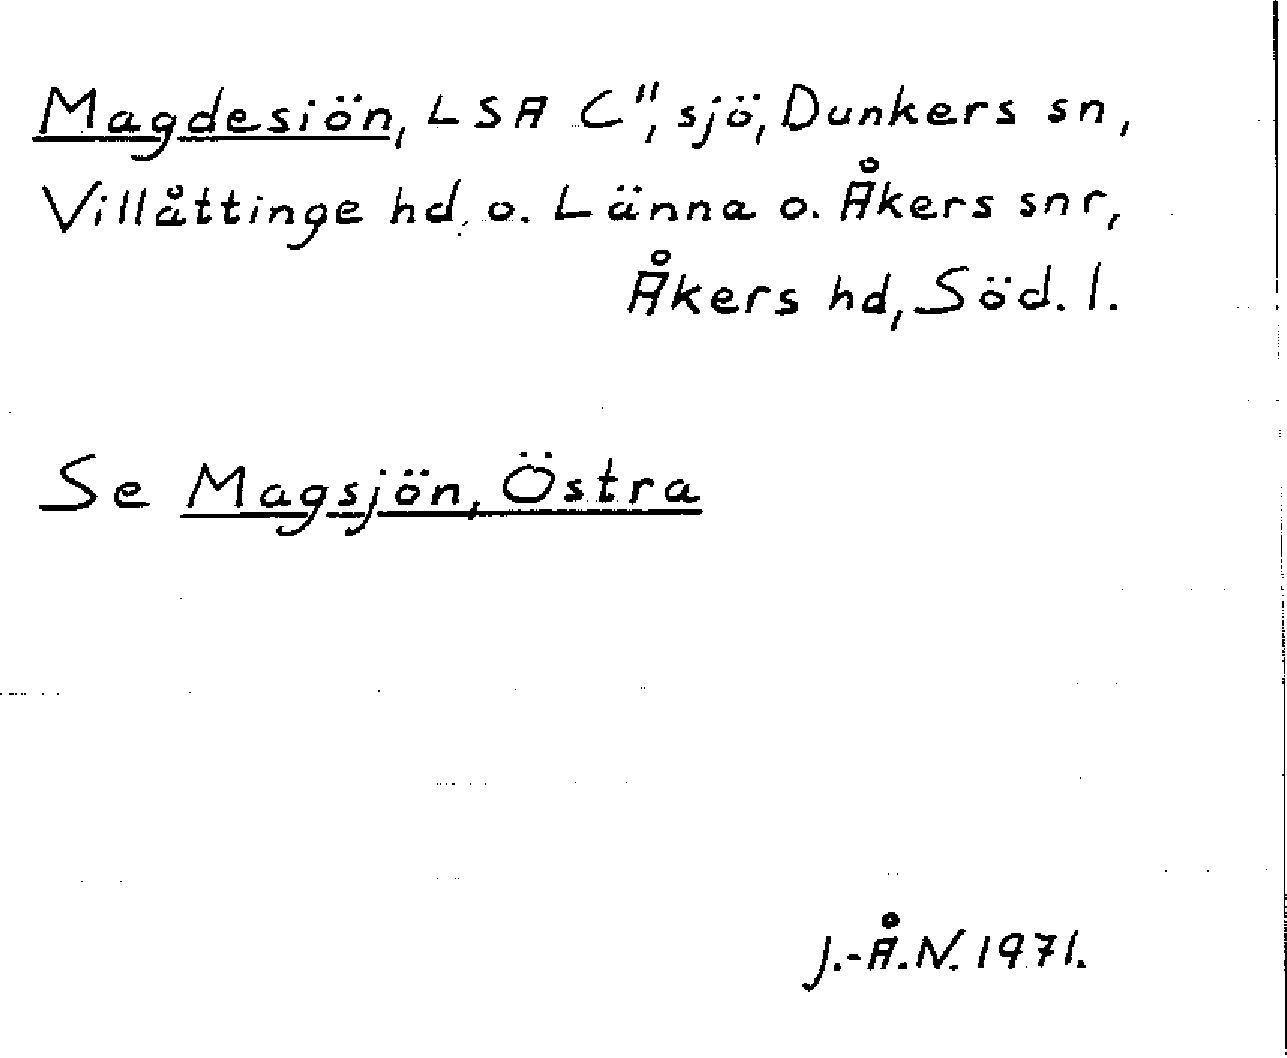 Magdesiön, LSA C", sjö, Dunkers sn,
Villåttinge hd. o. Länna o. Åkers snr,
Åkers hd, Söd. l.
Se Magsjön, Östra
J.-Å.N. 1971.